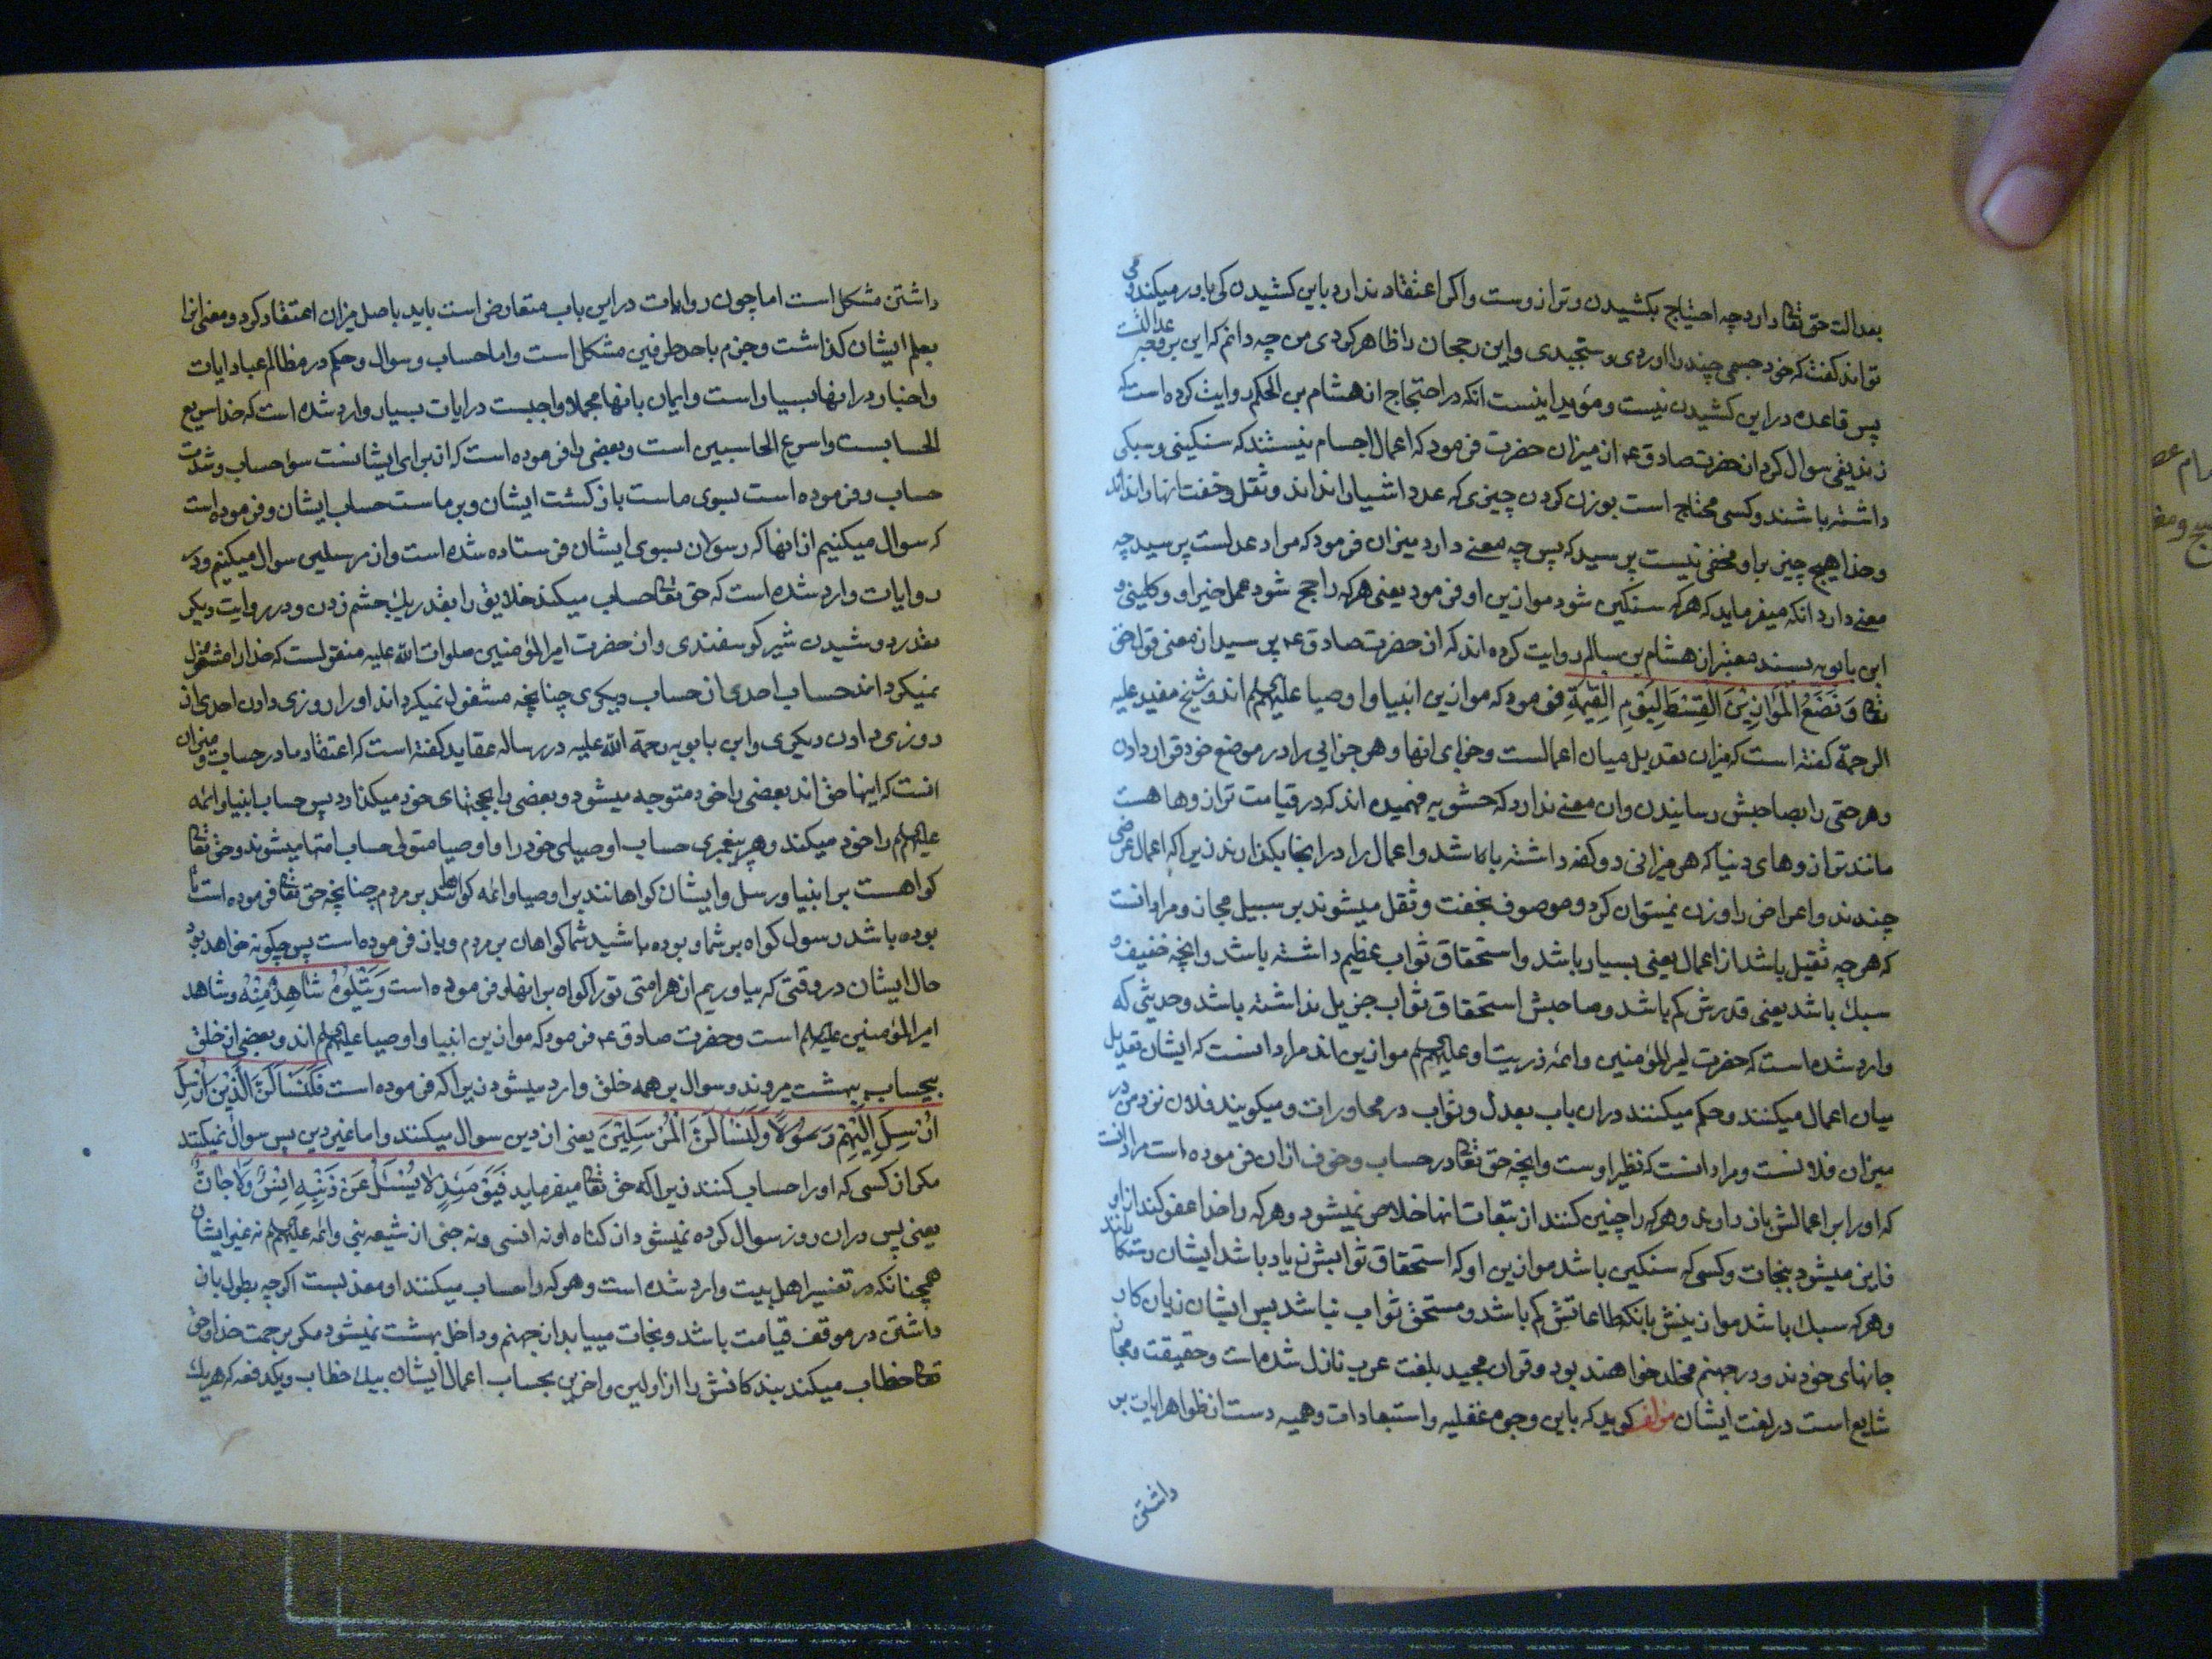 بعدالت حق تعالی دارد چه احتیاج بکشیدن و ترازوست واکر اعتقاد ندارد باین کشیدن کی باور میکند و می
تواند کفت که خود جسمی چند را اوردی و سنجیدی و این رجحان را ظاهر کردی من چه دانم که این بر وجه عدالتست
پس فایده در این کشیدن نیست و مؤید اینست انکه در احتجاج از هشام بن الحکم روایت کرده است که
زندیقی سوال کرد از حضرت صادق ع از میزان حضرت فرمود که اعمال اجسام نیستند که سنکینی و سبکی
داشته باشند و کسی محتاج است بوزن کردن چیزی که عدد اشیا را نداند و ثقل و خفت انها را نداند
و خدا هیچ چیز بر او مخفی نیست پرسید که پس چه معنی دارد میزان فرمود که مراد عدلست پرسید چه
معنی دارد انکه میفرماید که هر که سنکین شود موازین او فرمود یعنی هر که راجح شود عمل خیر او و کلینی و
ابن بابویه بسند معتبر از هشام بن سالم روایت کرده اند که از حضرت صادق ع پرسید از معنی قول حق
تعالی وَ نَضَعُ الْمَوازینَ الْقِسْطَ لِیَوْمِ الْقِیمَةِ فرمود که موازین انبیا و اوصیا علیهم السلم اند و شیخ مفید علیه
الرحمة کفته است که میزان تعدیل میان اعمالست و جزای انها و هر جزایی را در موضع خود قرار دادن
و هر حقی را بصاحبش رسانیدن و ان معنی ندارد که حشویه فهمیده اند که در قیامت ترازوها هست
مانند ترازوهای دنیا که هر میزانی دو کفه داشته باشد و اعمال را در انجا بکذارند زیرا که اعمال عرضی
چندند و اعراض را وزن نمیتوان کرد و موصوف بخفت و ثقل میشوند بر سبیل مجاز و مراد انست
که هر چه ثقیل باشد از اعمال یعنی بسیار باشد و استحقاق ثواب عظیم داشته باشد و انچه خفیف و
سبک باشد یعنی قدرش کم باشد و صاحبش استحقاق ثواب جزیل نداشته باشد و حدیثی که
وارد شده است که حضرت امیر المؤمنین وائمه ذریت او علیهم السلم موازین اند مراد انست که ایشان تعدیل
میان اعمال میکنند و حکم میکنند در ان باب بعدل و ثواب در محاورات و میکویند فلان نزد من در
میزان فلانست و مراد انست که نظیر اوست و انچه حق تعالی در حساب و خوف از ان فرموده است مراد انست
که او را بر اعمالش باز دارند و هر که را چنین کنند از تبعات انها خلاص نمیشود و هر که را خدا عفو کند از او
فایز میشود بنجات و کسی که سنکین باشد موازین او که استحقاق ثوابش زیاد باشد ایشان رستکارانند
و هر که سبک باشد موازینش بانکه طاعاتش کم باشد و مستحق ثواب نباشد پس ایشان زیان کار
جانهای خودند و در جهنم مخلد خواهند بود و قران مجید بلغت عرب نازل شده است و حقیقت و مجاز
شایع است در لغت ایشان مؤلف کوید که باین وجوه عقلیه و استبعادات وهمیه دست از ظواهر ایات بر
داشتن
داشتن مشکل است اما چون روایات در این باب متعارض است باید باصل میزان اعتقاد کرد و معنی انرا
بعلم ایشان کذاشت و جزم باحد طرفین مشکل است و اما حساب و سوال و حکم در مظالم عباد ایات
و اخبار در انها بسیار است و ایمان بانها مجملا واجبست در ایات بسیار وارد شده است که خدا سریع
الحسابست و اسرع الحاسبین است و بعضی را فرموده است که از برای ایشانست سوء حساب و شدت
حساب و فرموده است بسوی ماست بازکشت ایشان و بر ماست حساب ایشان و فرموده است
که سوال میکنیم از انها که رسولان بسوی ایشان فرستاده شده است و از مرسلین سوال میکنیم و در
روایات وارد شده است که حق تعالی حساب میکند خلایق را بقدر یک چشم زدن و در روایت دیکر
بقدر دوشیدن شیر کوسفندی و از حضرت امیر المؤمنین صلوات الله علیه منقولست که خدا را مشغول
نمیکرداند حساب احدی از حساب دیکری چنانچه مشغول نمیکرداند او را روزی دادن احدی از
روزی دادن دیکری و ابن بابویه رحمة الله علیه در رساله عقاید کفته است که اعتقاد ما در حساب و میزان
انست که اینها حق اند بعضی را خود متوجه میشود و بعضی را بحجتهای خود میکذارد پس حساب انبیا و ائمه
علیهم السلم را خود میکند و هر پیغمبری حساب اوصیای خود را و اوصیا متولی حساب امتها میشوند و حق تعالی
کواهست بر انبیا و رسل و ایشان کواهانند بر اوصیا و ائمه کواهند بر مردم چنانچه حق تعالی فرموده است تا
بوده باشد رسول کواه بر شما و بوده باشید شما کواهان بر مردم و باز فرموده است پس چکونه خواهد بود
حال ایشان در وقتی که بیاوریم از هر امتی ترا کواه بر انها و فرموده است وَیَتْلُوهُ شاهِدٌ مِنْهُ و شاهد
امیر المؤمنین علیه السلم است و حضرت صادق ع فرمود که موازین انبیا و اوصیا علیهم السلم اند و بعضی از خلق
بیحساب ببهشت میروند و سوال بر همه خلق وارد میشود زیرا که فرموده است فَلَنَسْئَلَنَّ الَّذینَ اُرْسِلَ
اُرْسِلَ اِلَیْهِمْ رَسُولًا وَلَنَسْئَلَنَّ الْمُرْسَلینَ یعنی از دین سوال میکنند و اما غیر دین پس سوال نمیکنند
مکر از کسی که او را حساب کنند زیرا که حق تعالی میفرماید فَیَوْمَئِذٍ لا یُسْئَلُ عَنْ ذَنْبِهِ اِنْسٌ وَلا جانٌّ
یعنی پس در ان روز سوال کرده نمیشود از کناه او نه انسی و نه جنی از شیعه نبی و ائمه علیهم السلم نه غیر ایشان
همچنانکه در تفسیر اهل بیت وارد شده است و هر که را حساب میکنند او معذبست اکرچه بطول باز
داشتن در موقف قیامت باشد و نجات نمییابد از جهنم و داخل بهشت نمیشود مکر برحمت خدا و حق
تعالی خطاب میکند بندکانش را از اولین و اخرین بحساب اعمال ایشان بیک خطاب و یکدفعه که هر یک